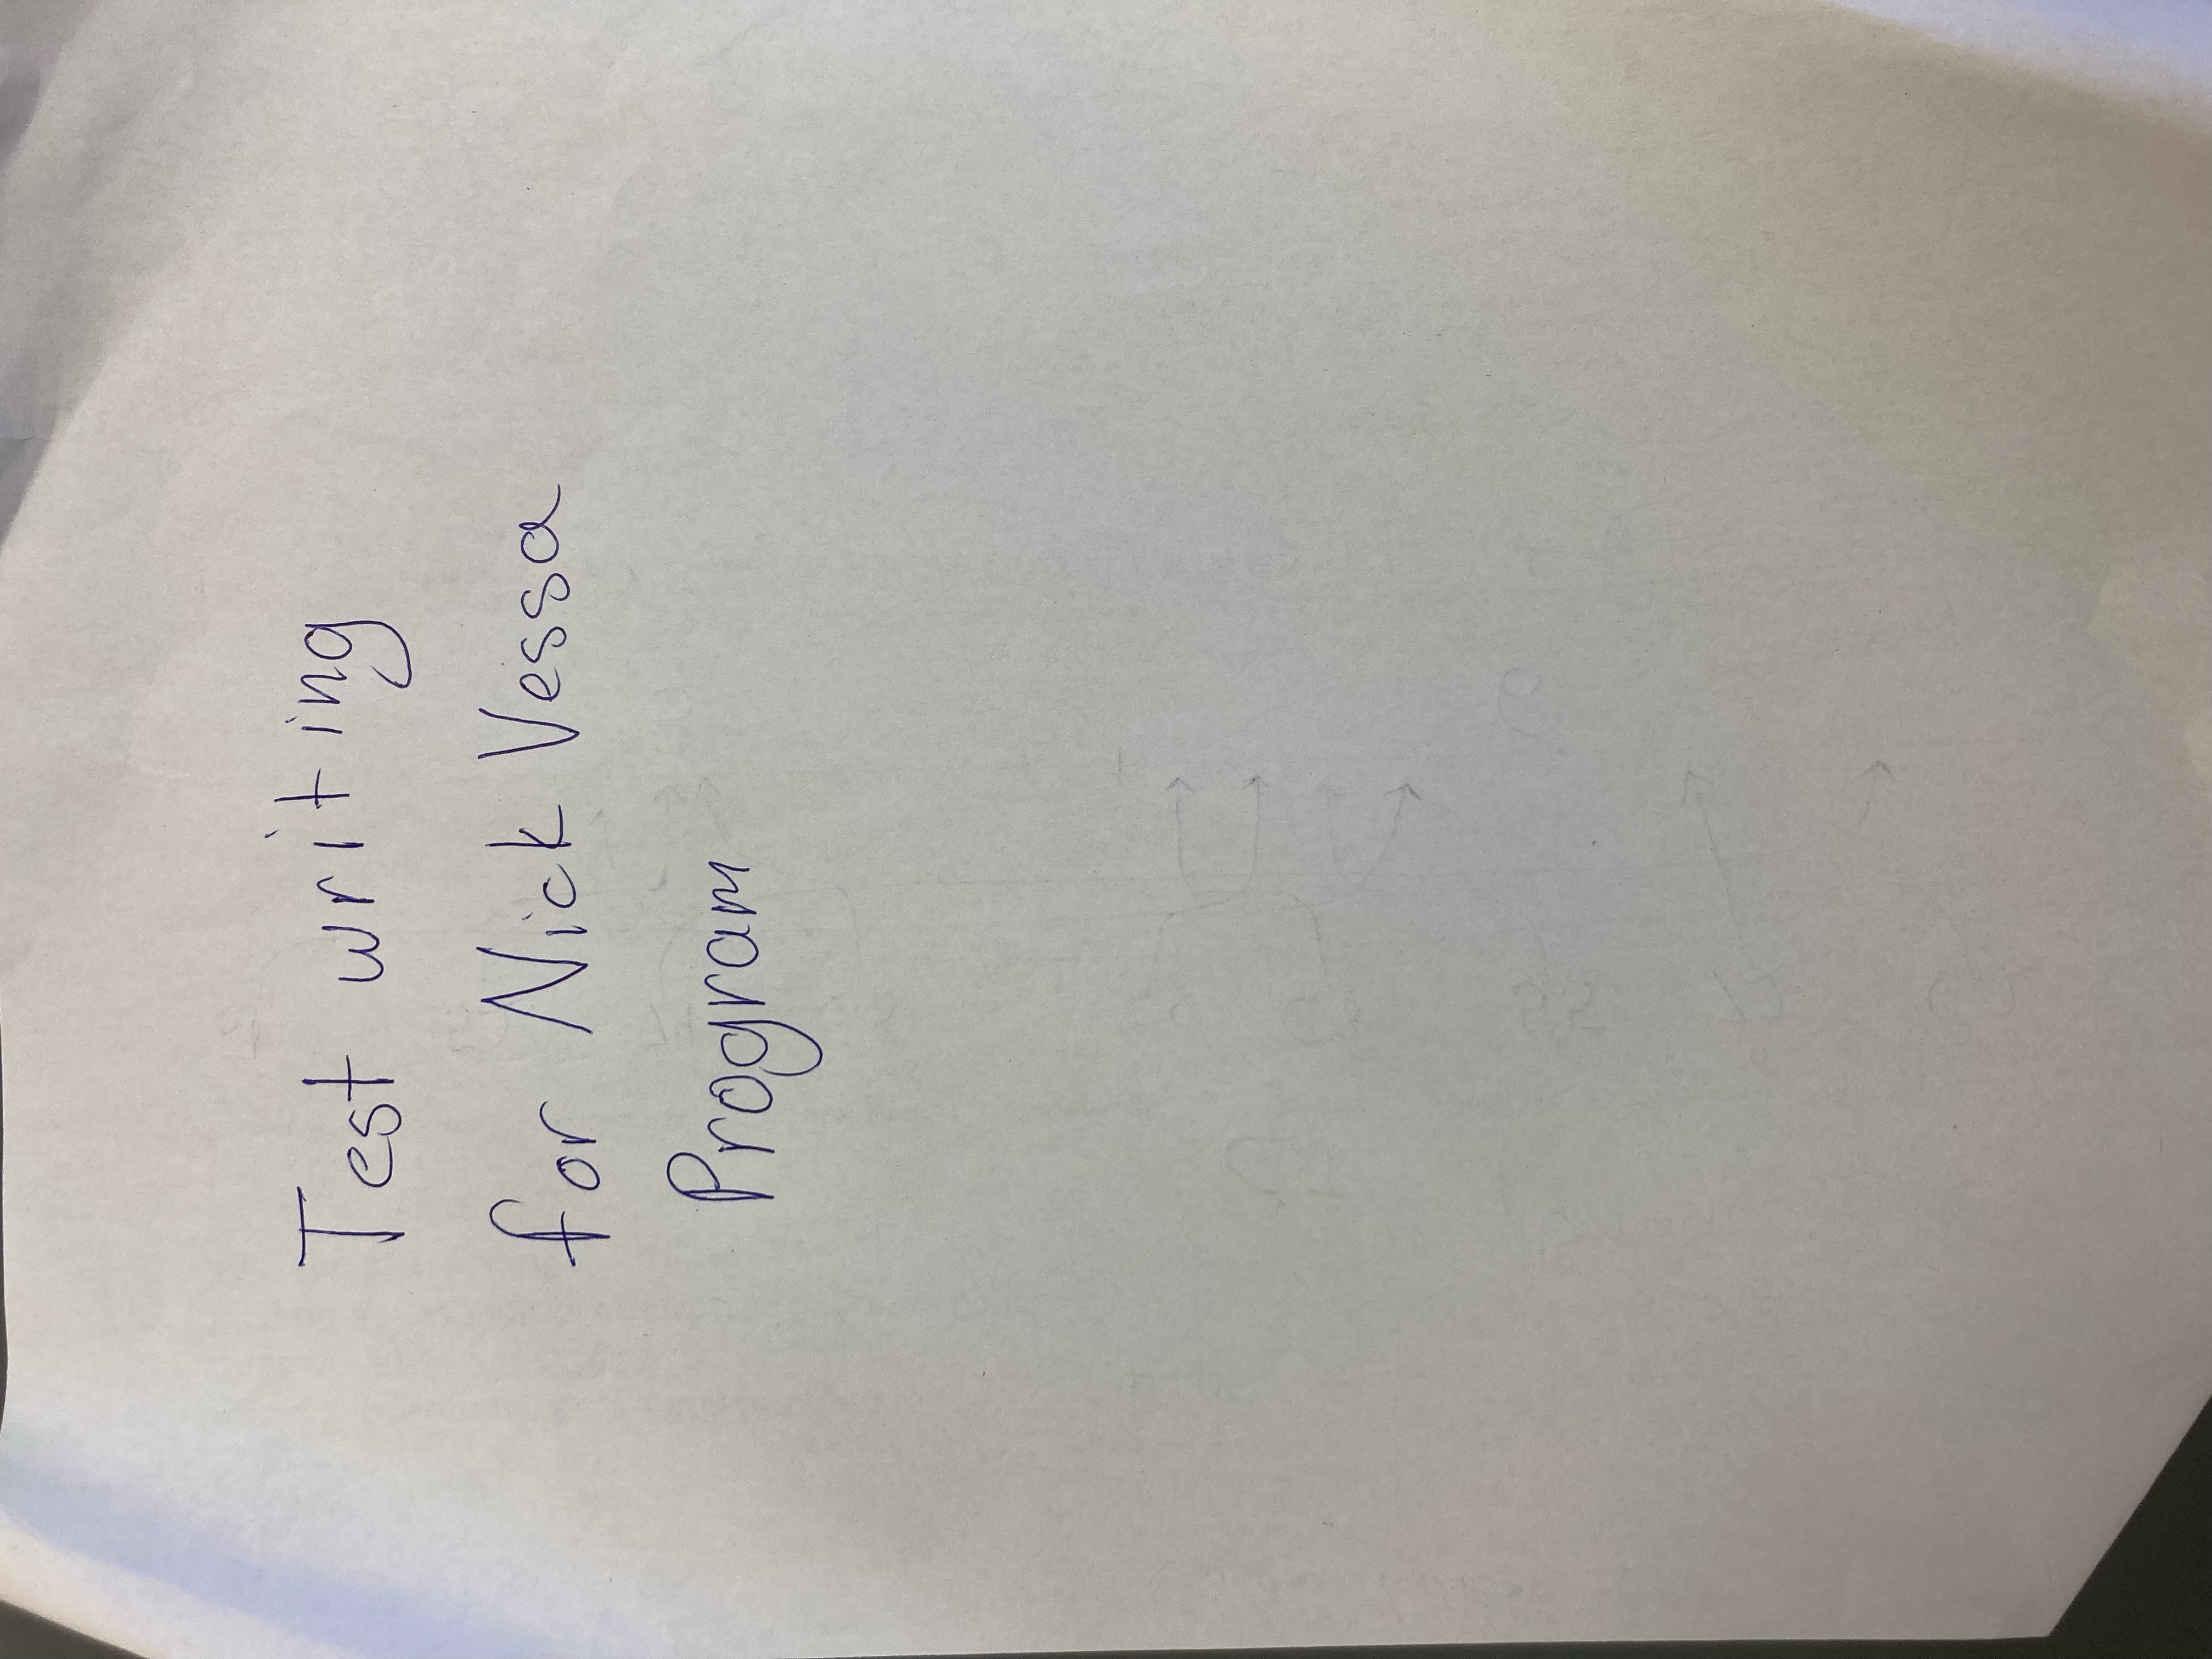 Test writing
for Nick Vessa
Program